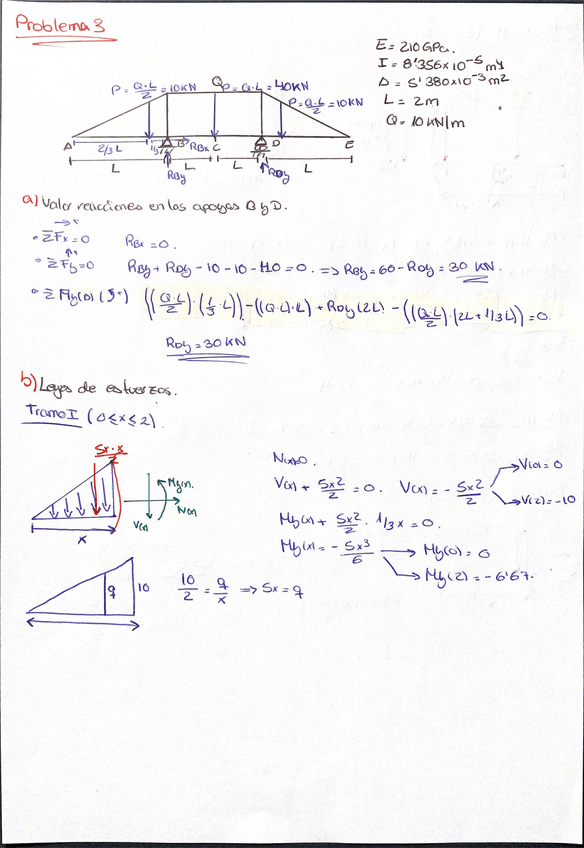 Problema 3
E = 210 GPa.
I = 8'356x10⁻⁵ m4
A = 5'380x10⁻³ m2
L = 2m
Q = 10 KN/m
P = Q·L/2 = 10KN
Q
P = Q·L = 40KN
P = Q·L/2 = 10KN
A B RBx C D E
2/3 L
L L L L
RBy RDy
a) Valor reacciones en los apoyos B y D.
• ΣFx=0 RBx = 0.
• ΣFy=0 RBy + RDy - 10 - 10 - 40 = 0. => RBy = 60 - RDy = 30 KN.
• ΣMy(B) ((Q·L/2)·(1/3·L)) - ((Q·L)·L) + RDy(2L) - ((Q·L/2)·(2L+1/3L)) = 0.
RDy = 30 KN
b) Leyes de esfuerzos.
Tramo I (0≤x≤2).
5x·x/2
My(x).
N(x)
V(x)
x
N(x)=0.
V(x) + 5x2/2 = 0. V(x) = - 5x2/2
V(0) = 0
V(2) = -10
My(x) + 5x2/2 · 1/3x = 0.
My(x) = - 5x3/6
My(0) = 0
My(2) = -6'67.
q 10
10/2 = q/x => 5x = q